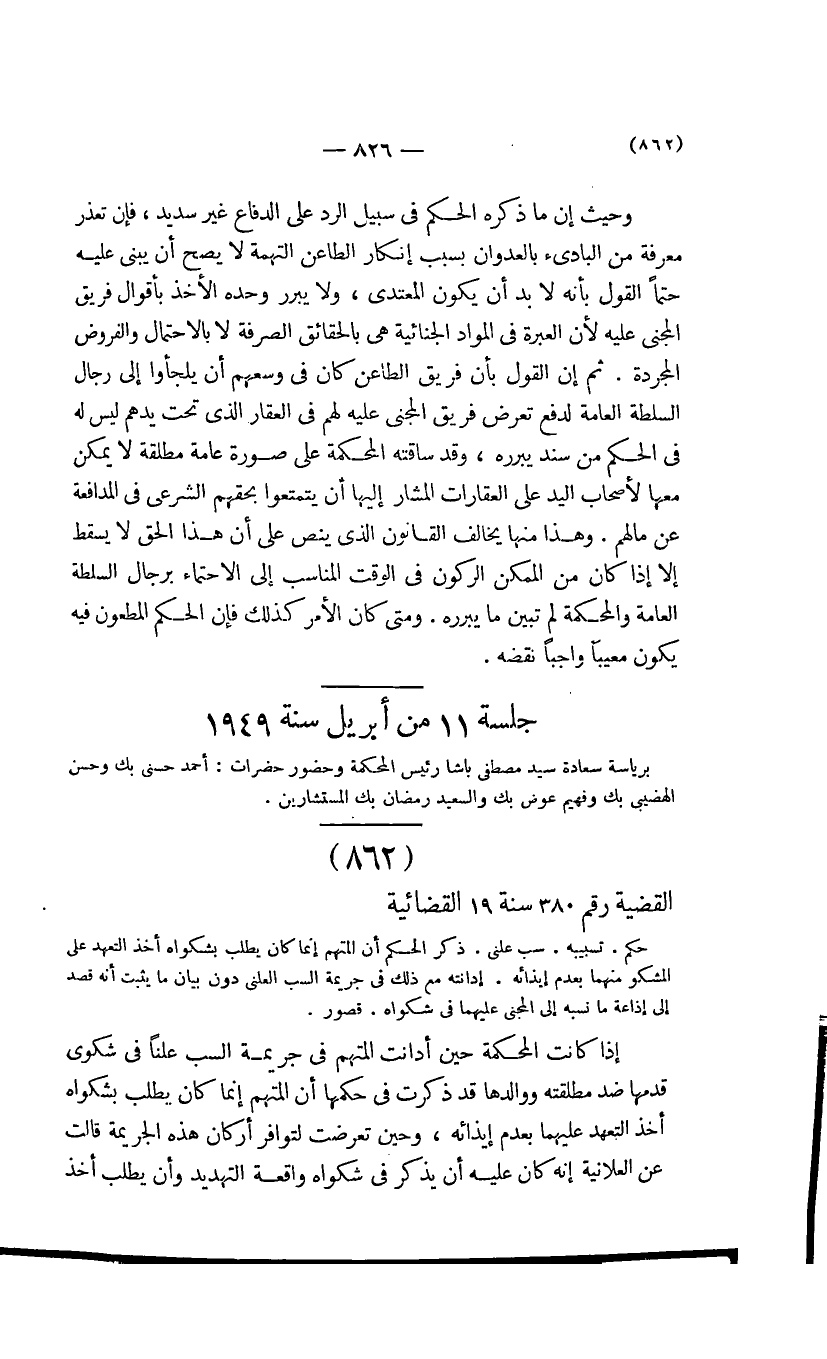 (٨٦٢)
— ٨٢٦ —
وحيث إن ما ذكره الحكم فى سبيل الرد على الدفاع غير سديد ، فإن تعذر
معرفة من البادىء بالعدوان بسبب إنكار الطاعن التهمة لا يصح أن يبنى عليه
حتماً القول بأنه لا بد أن يكون المعتدى ، ولا يبرر وحده الأخذ بأقوال فريق
المجنى عليه لأن العبرة فى المواد الجنائية هى بالحقائق الصرفة لا بالاحتمال والفروض
المجردة . ثم إن القول بأن فريق الطاعن كان فى وسعهم أن يلجأوا إلى رجال
السلطة العامة لدفع تعرض فريق المجنى عليه لهم فى العقار الذى تحت يدهم ليس له
فى الحكم من سند يبرره ، وقد ساقته المحكمة على صورة عامة مطلقة لا يمكن
معها لأصحاب اليد على العقارات المشار إليها أن يتمتعوا بحقهم الشرعى فى المدافعة
عن مالهم . وهذا منها يخالف القانون الذى ينص على أن هذا الحق لا يسقط
إلا إذا كان من الممكن الركون فى الوقت المناسب إلى الاحتماء برجال السلطة
العامة والمحكمة لم تبين ما يبرره . ومتى كان الأمر كذلك فإن الحكم المطعون فيه
يكون معيباً واجباً نقضه .
جلسة ١١ من أبريل سنة ١٩٤٩
برياسة سعادة سيد مصطفى باشا رئيس المحكمة وحضور حضرات : أحمد حسنى بك وحسن
الهضيبى بك وفهيم عوض بك والسعيد رمضان بك المستشارين .
(٨٦٢)
القضية رقم ٣٨٠ سنة ١٩ القضائية
حكم . تسبيبه . سب علنى . ذكر الحكم أن المتهم إنما كان يطلب بشكواه أخذ التعهد على
المشكو منهما بعدم إيذائه . إدانته مع ذلك فى جريمة السب العلنى دون بيان ما يثبت أنه قصد
إلى إذاعة ما نسبه إلى المجنى عليهما فى شكواه . قصور .
إذا كانت المحكمة حين أدانت المتهم فى جريمة السب علناً فى شكوى
قدمها ضد مطلقته ووالدها قد ذكرت فى حكمها أن المتهم إنما كان يطلب بشكواه
أخذ التعهد عليهما بعدم إيذائه ، وحين تعرضت لتوافر أركان هذه الجريمة قالت
عن العلانية إنه كان عليه أن يذكر فى شكواه واقعة التهديد وأن يطلب أخذ